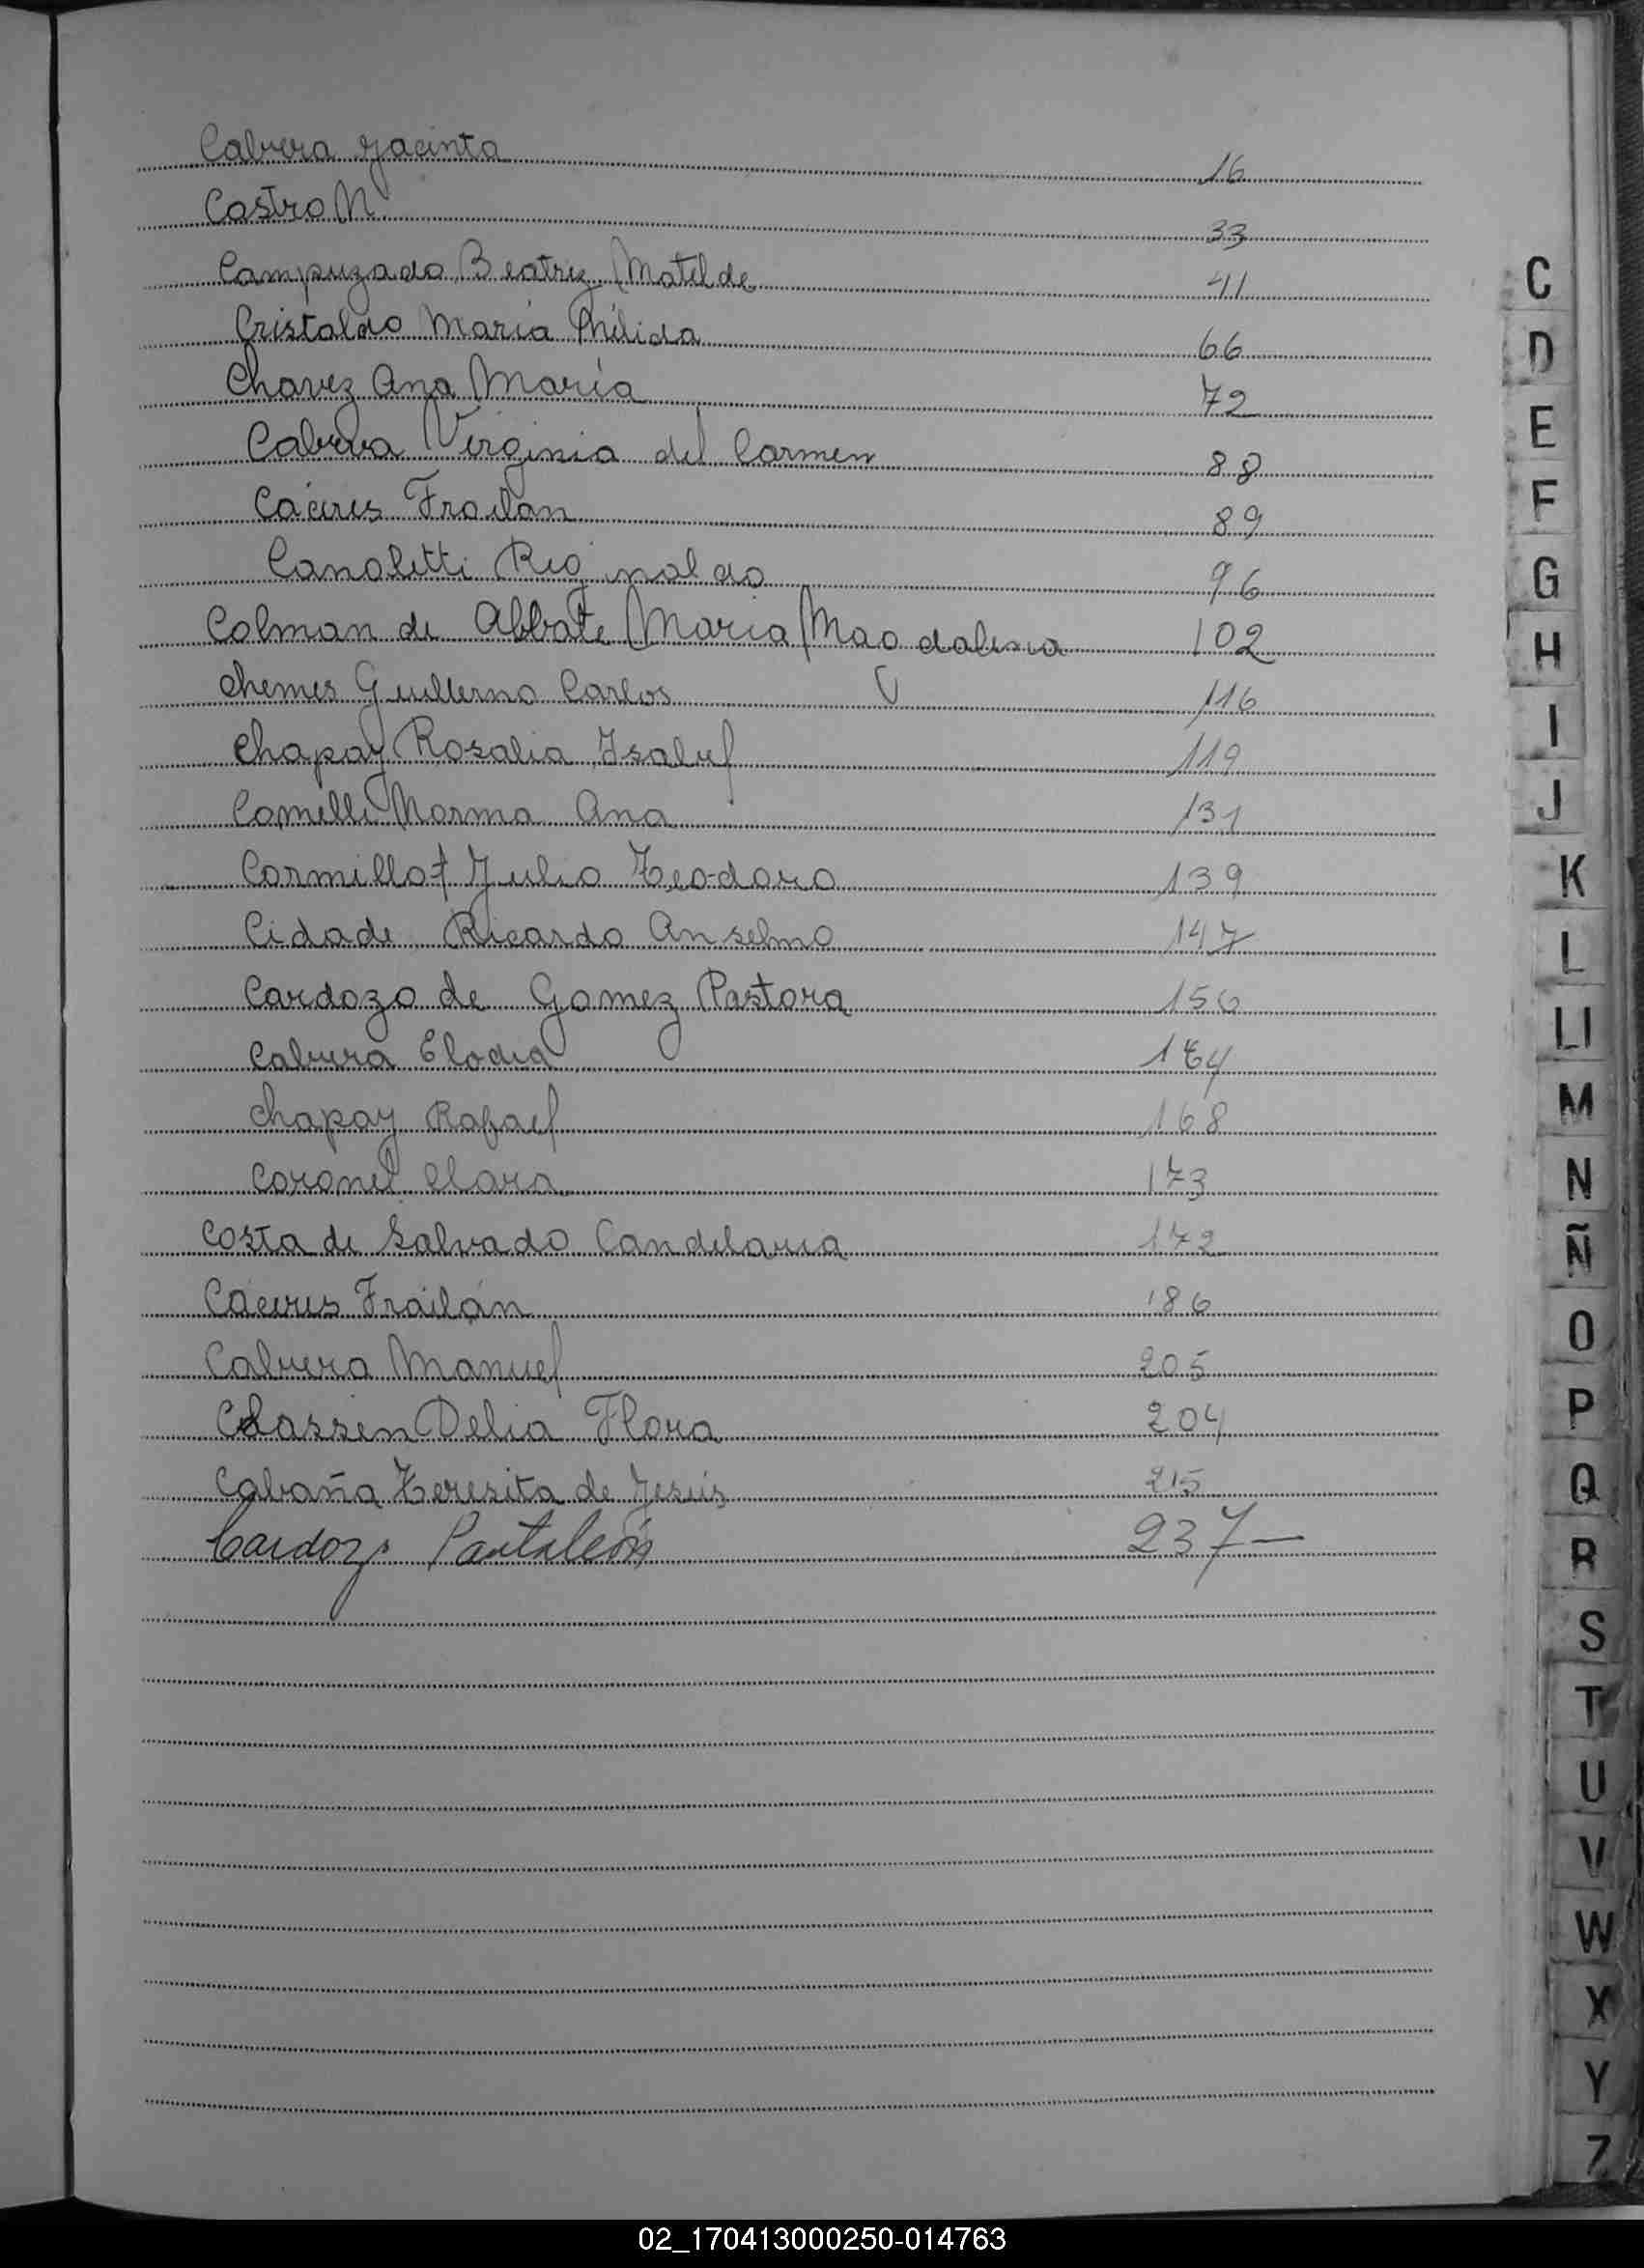 Cabrera Jacinta 16
Castro N 33
Campuzado Beatriz Matilde 41
Cristaldo María Philida 66
Chavez Ana María 72
Cabrera Virginia del Carmen 88
Cáceres Froilan 89
Canaletti Reginaldo 96
Colman de Abbate Maria Magdalena 102
Chemes Guillermo Carlos 116
Chapay Rosalia Isabel 119
Comelli Norma Ana 131
Cormillot Julio Teodoro 139
Cidade Ricardo Anselmo 147
Cardozo de Gomez Pastora 156
Cabrera Elodia 164
Chapay Rafael 168
Coronel Clara 173
Costa de Salvado Candelaria 172
Cáceres Froilán 186
Cabrera Manuel 205
Classen Delia Flora 204
Cabaña Teresita de Jesús 215
Cardozo Pantaleón 237—
C
D
E
F
G
H
I
J
K
L
Ll
M
N
Ñ
O
P
Q
R
S
T
U
V
W
X
Y
Z
02_170413000250-014763